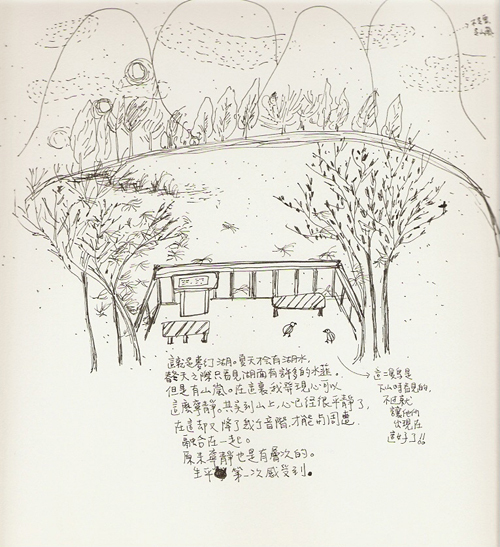 不是雲
是山嵐
這就是夢幻湖。夏天才會有湖水,
春天之際只看見湖面有許多的水韭。
但是有山嵐。在這裏我發現心可以
這麼寧靜。其實到山上,心已經很平靜了,
在這却又降了幾個音階,才能与周遭
融合在一起。
原來寧靜也是有層次的。
生平 第一次感受到。
這二隻鳥是
下山時看見的,
不過就
讓他們
出現在
這好了!!